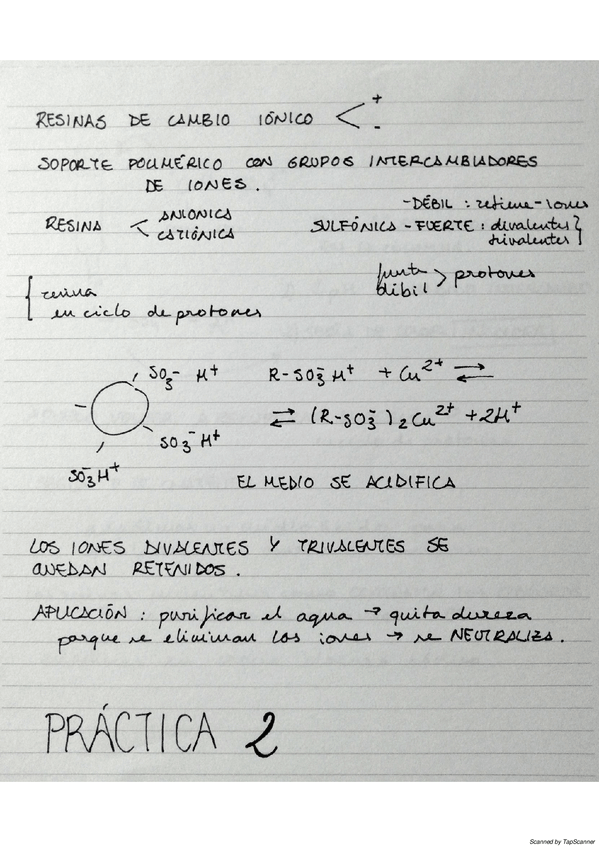 RESINAS DE CAMBIO IÓNICO < + -
SOPORTE POLIMÉRICO CON GRUPOS INTERCAMBIADORES
DE IONES.
-DÉBIL : retiene - iones
RESINA < ANIONICA CATIÓNICA
SULFÓNICA - FUERTE : divalentes trivalentes }
junta débil > protones
{ resina
en ciclo de protones
SO3- H+
R-SO3- H+ + Cu2+ ⇌
⇌ (R-SO3-)2 Cu2+ + 2H+
SO3- H+
SO3- H+
EL MEDIO SE ACIDIFICA
LOS IONES DIVALENTES Y TRIVALENTES SE
QUEDAN RETENIDOS.
APLICACIÓN : purificar el agua → quita dureza
porque se eliminan los iones → se NEUTRALIZA.
PRÁCTICA 2
Scanned by TapScanner